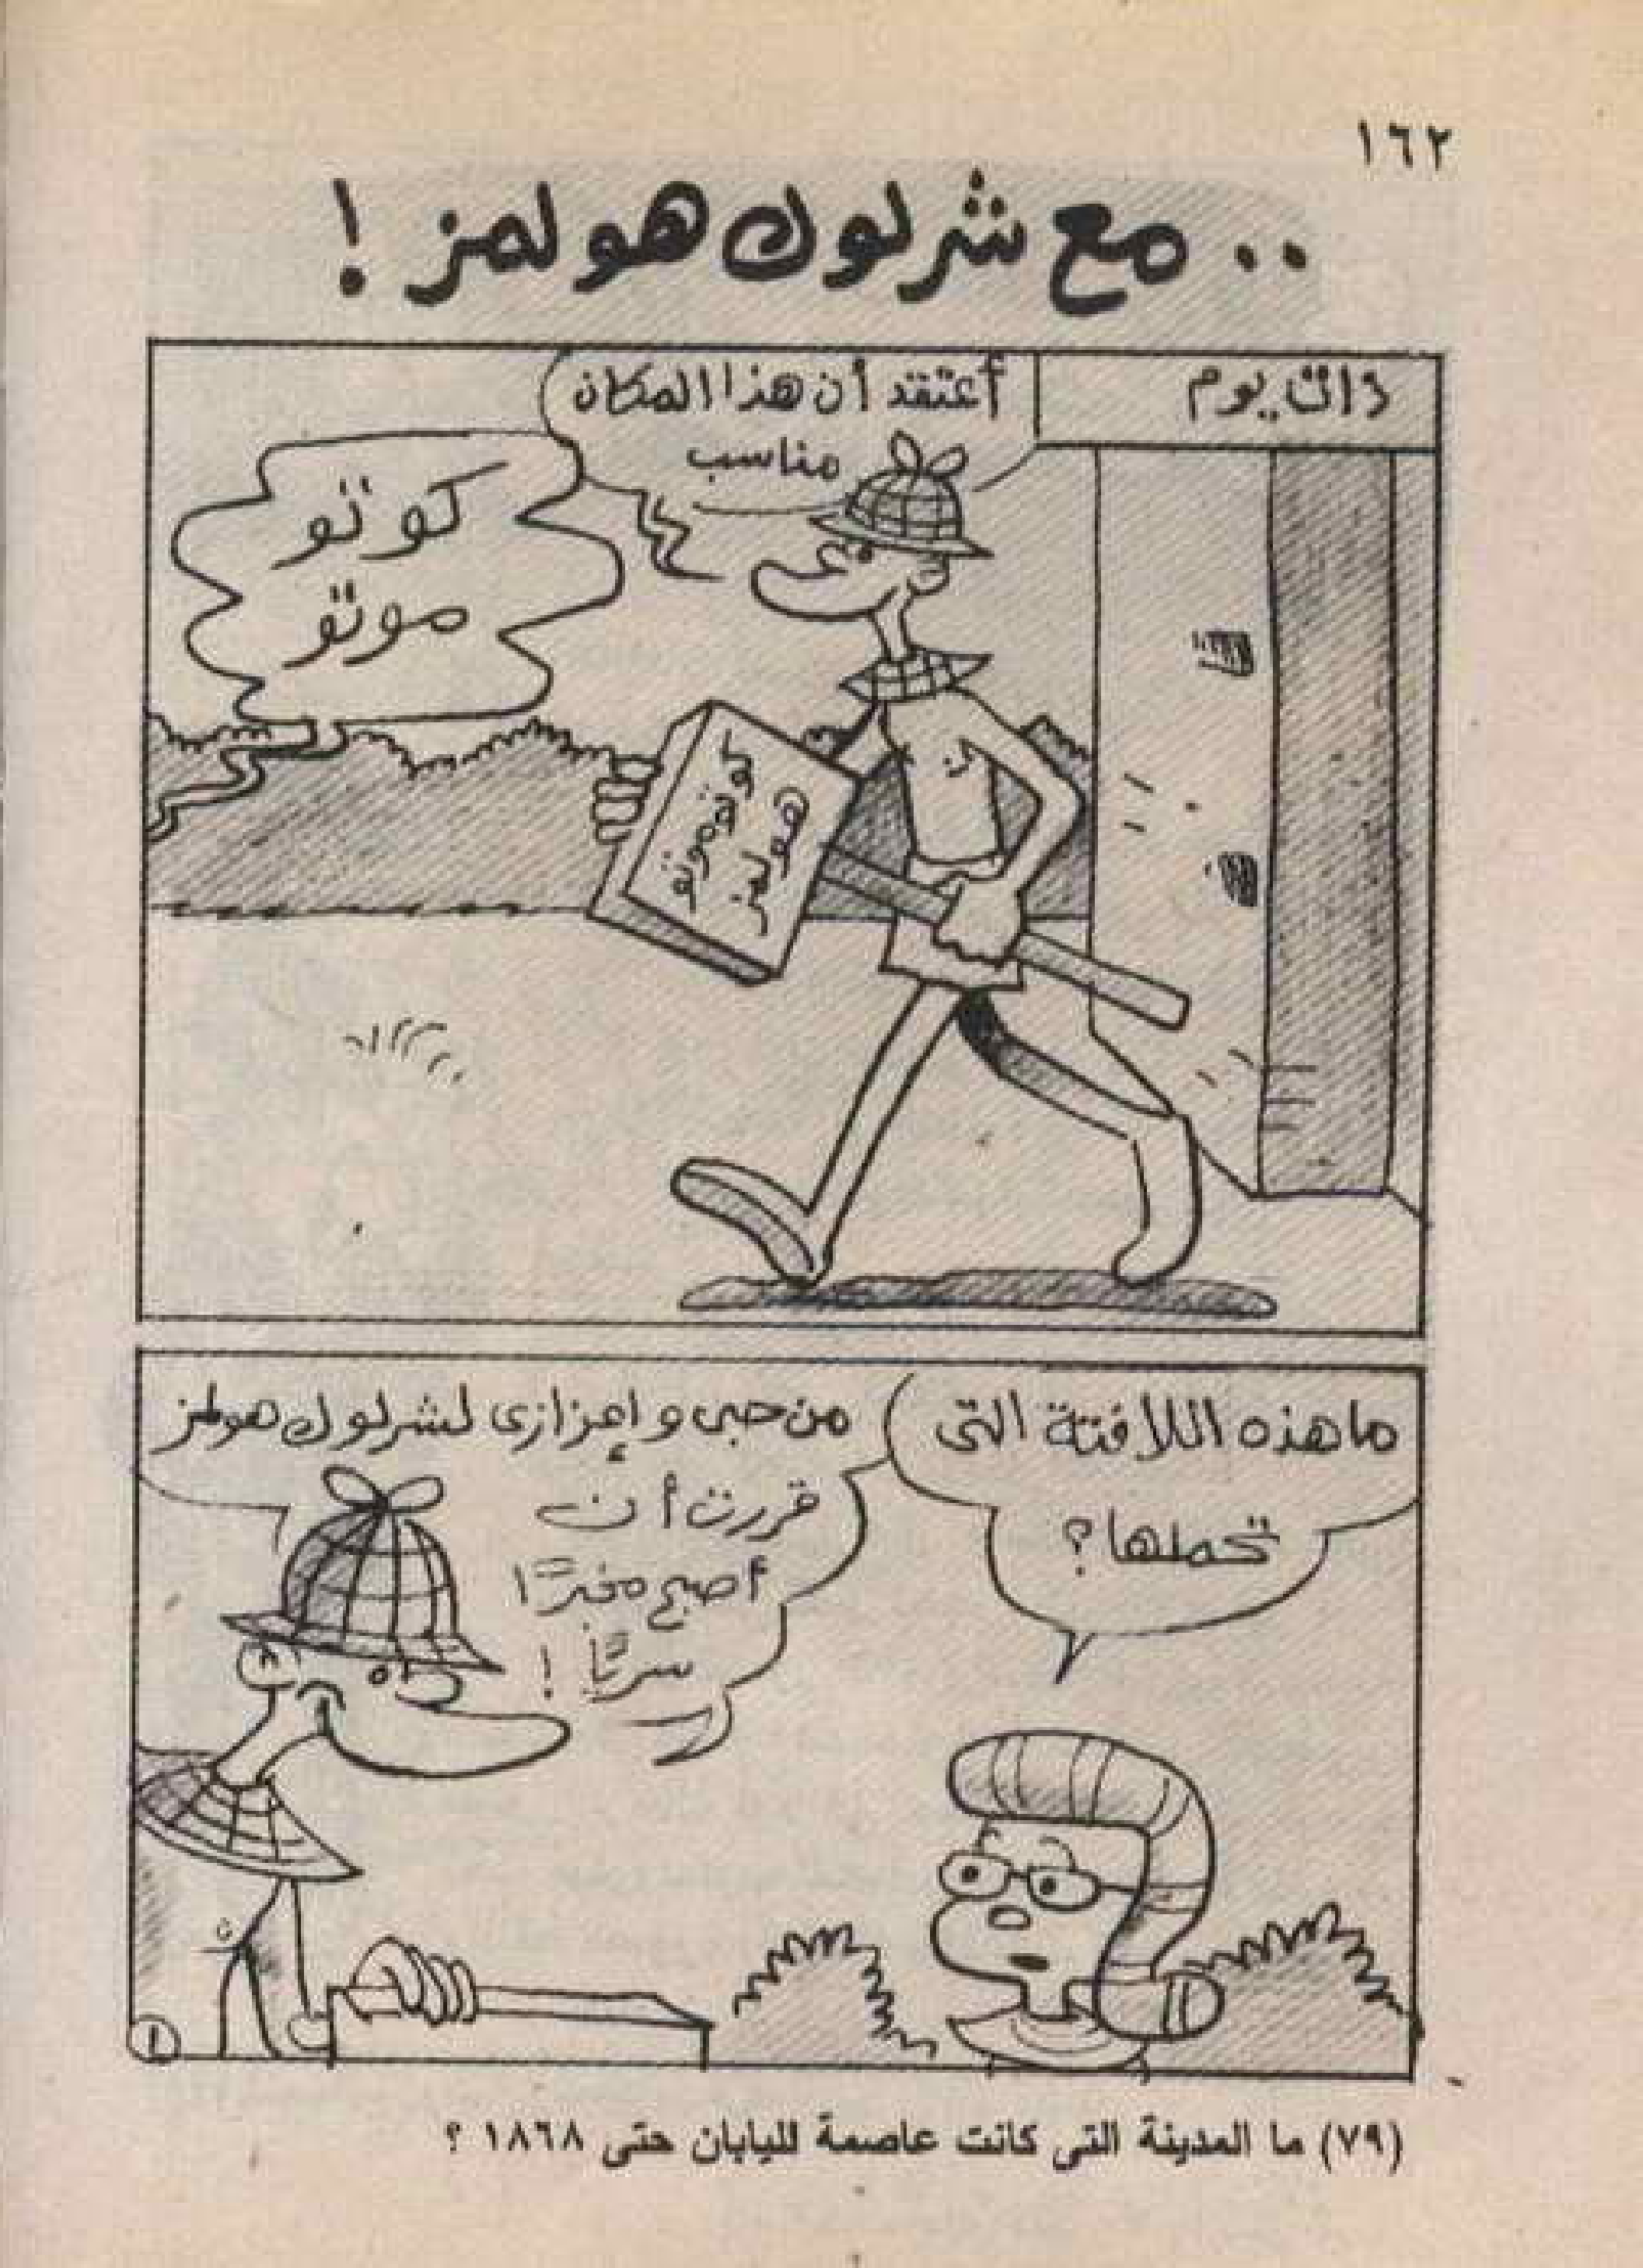 ١٦٢
.. مع شرلوك هولمز !
ذات يوم
أعتقد أن هذا المكان
مناسب
كوتو
موتو
كوتوموتو
هولمز
ما هذه اللافتة التى
تحملها؟
من حبى وإعزازى لشرلوك هولمز
قررت أن
أصبح مخبرًا
سريًا !
١
(٧٩) ما المدينة التى كانت عاصمة لليابان حتى ١٨٦٨ ؟